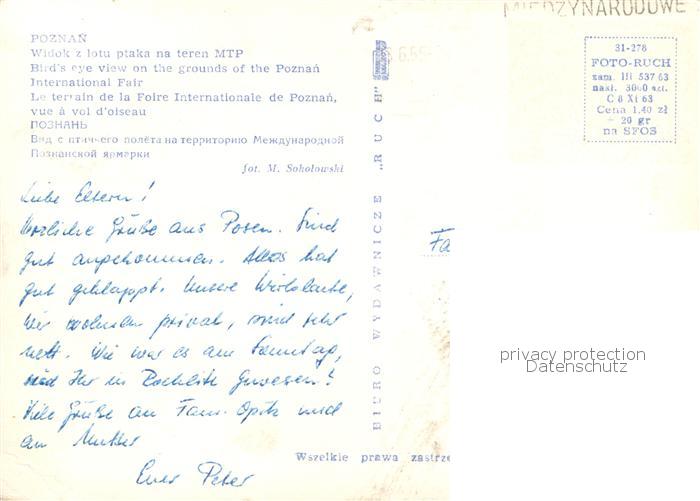 MIĘDZYNARODOWE
POZNAŃ
Widok z lotu ptaka na teren MTP
Bird's eye view on the grounds of the Poznań
International Fair
Le terrain de la Foire Internationale de Poznań,
vue à vol d'oiseau
ПОЗНАНЬ
Вид с птичьего полёта на территорию Международной
Познанской ярмарки
fot. M. Sokołowski
31-278
FOTO-RUCH
zam. III 537 63
nakł. 3000 szt.
C 8 XI 63
Cena 1,40 zł
+ 20 gr
na SFOS
BIURO WYDAWNICZE „RUCH"
Liebe Eltern!
Herzliche Grüße aus Posen. Sind
gut angekommen. Alles hat
gut geklappt. Unsere Wirtsleute,
wir wohnen privat, sind sehr
nett. Wie war es am Sonntag,
seid Ihr in Rochlitz gewesen?
Viele Grüße an Fam. Opitz und
an Mutter
Euer Peter
Fa
privacy protection
Datenschutz
Wszelkie prawa zastrze